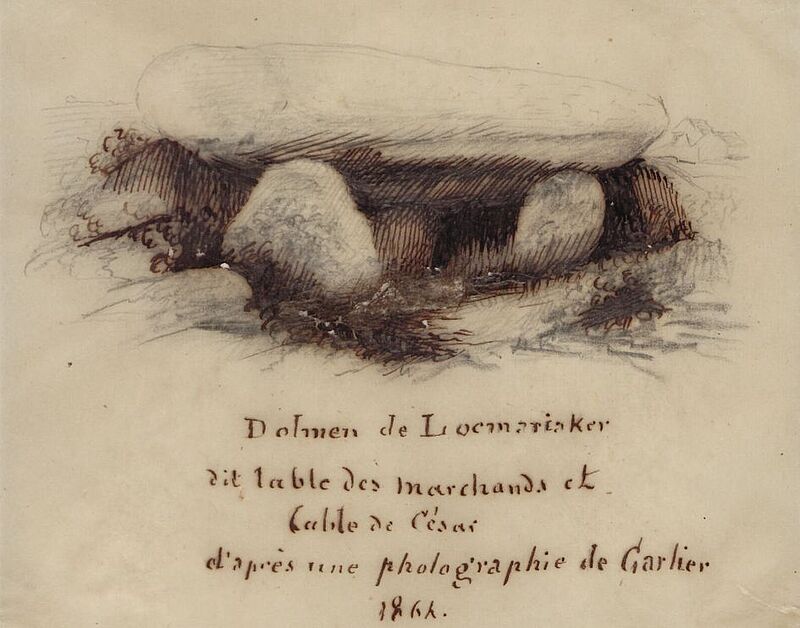 Dolmen de Locmariaker
dit table des marchands et
table de César
d'après une photographie de Carlier
1864.